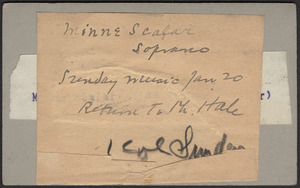 Minne Scalar
Soprano
Sunday music Jan 20
Return To Ph. Hale
1 Col Sunday